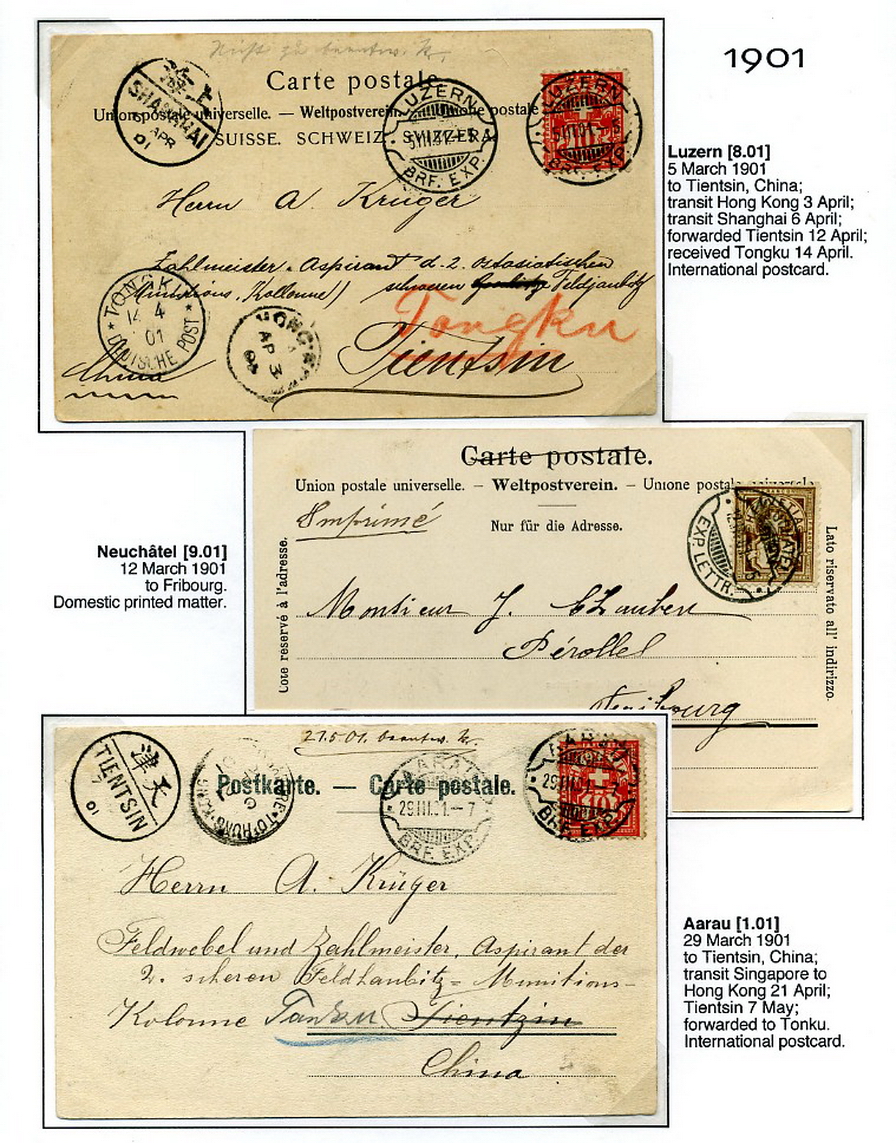 1901
Nicht zu beantw. Kr.
Carte postale.
Union postale universelle. — Weltpostverein. — Unione postale
SUISSE. SCHWEIZ. SVIZZERA.
SHANGHAI
6 APR 01
LUZERN
5.III.01.-5
BRF. EXP.
LUZERN
5.III.01.-5
BRF. EXP.
10
Herrn A. Krüger
Zahlmeister-Aspirant d. 2. ostasiatischen
Munitions, Kollonne) schweren Feldhaubitz
Tongku
Tientsin
China
TONGKU
14 4 01
DEUTSCHE POST
HONG K
AP 3
01
Luzern [8.01]
5 March 1901
to Tientsin, China;
transit Hong Kong 3 April;
transit Shanghai 6 April;
forwarded Tientsin 12 April;
received Tongku 14 April.
International postcard.
Carte postale.
Union postale universelle. — Weltpostverein. — Unione postale universale
Imprimé
Nur für die Adresse.
Côté réservé à l'adresse.
Lato riservato all' indirizzo.
NEUCHATEL
EXP. LETTR.
HELVETIA
Monsieur J.
Pérolles
Freibourg
Neuchâtel [9.01]
12 March 1901
to Fribourg.
Domestic printed matter.
21.5.01. beantw. Kr.
Postkarte. — Carte postale.
天津
TIENTSIN
7
01
SINGAPORE TO HONG-KONG
AARAU
29.III.01.-7
BRF. EXP.
AARAU
29.III.01.-7
BRF. EXP.
10
Herrn A. Krüger
Feldwebel und Zahlmeister, Aspirant der
2. schweren Feldhaubitz = Munitions-
Kolonne Tientzin
China
Aarau [1.01]
29 March 1901
to Tientsin, China;
transit Singapore to
Hong Kong 21 April;
Tientsin 7 May;
forwarded to Tonku.
International postcard.